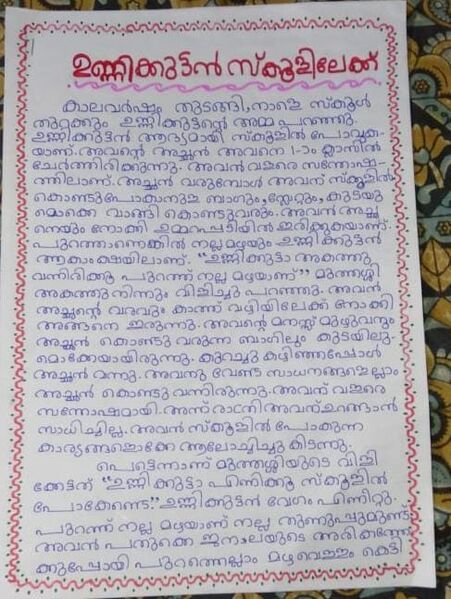 ഉണ്ണിക്കുട്ടൻ സ്കൂളിലേക്ക്
കാലവർഷം തുടങ്ങി, നാളെ സ്കൂൾ
തുറക്കും ഉണ്ണിക്കുട്ടന്റെ അമ്മ പറഞ്ഞു.
ഉണ്ണിക്കുട്ടൻ ആദ്യമായി സ്കൂളിൽ പോവുക
യാണ്. അവന്റെ അച്ഛൻ അവനെ 1-ാം ക്ലാസിൽ
ചേർത്തിരിക്കുന്നു. അവൻ വളരെ സന്തോഷ-
ത്തിലാണ്. അച്ഛൻ വരുമ്പോൾ അവന് സ്കൂളിൽ
കൊണ്ടുപോകാനുള്ള ബാഗും, സ്ലേറ്റും, കുടയു
മൊക്കെ വാങ്ങി കൊണ്ടുവരും. അവൻ അച്ഛ
നെയും നോക്കി ഉമ്മറപ്പടിയിൽ ഇരിക്കുകയാണ്.
പുറത്താണെങ്കിൽ നല്ല മഴയും ഉണ്ണിക്കുട്ടൻ
ആകാംക്ഷയിലാണ്. "ഉണ്ണിക്കുട്ടാ അകത്തു
വന്നിരിക്കൂ പുറത്ത് നല്ല മഴയാണ്" മുത്തശ്ശി
അകത്തുനിന്നും വിളിച്ചു പറഞ്ഞു. അവൻ
അച്ഛന്റെ വരവും കാത്ത് വഴിയിലേക്ക് നോക്കി
അങ്ങനെ ഇരുന്നു. അവന്റെ മനസ്സ് മുഴുവനും
അച്ഛൻ കൊണ്ടു വരുന്ന ബാഗിലും കുടയിലു-
മൊക്കേയായിരുന്നു. കുറച്ചു കഴിഞ്ഞപ്പോൾ
അച്ഛൻ വന്നു. അവനു വേണ്ട സാധനങ്ങളെല്ലാം
അച്ഛൻ കൊണ്ടു വന്നിരുന്നു. അവന് വളരെ
സന്തോഷമായി. അന്ന് രാത്രി അവന് ഉറങ്ങാൻ
സാധിച്ചില്ല. അവൻ സ്കൂളിൽ പോകുന്ന
കാര്യങ്ങളൊക്കേ ആലോചിച്ചു കിടന്നു.
പെട്ടെന്നാണ് മുത്തശ്ശിയുടെ വിളി
കേട്ടത് "ഉണ്ണിക്കുട്ടാ എണിക്കൂ സ്കൂളിൽ
പോകേണ്ടെ." ഉണ്ണിക്കുട്ടൻ വേഗം എണിറ്റു.
പുറത്ത് നല്ല മഴയാണ് നല്ല തണുപ്പുമുണ്ട്
അവൻ പതുക്കെ ജനാലയുടെ അരികത്തേ
ക്കുപോയി പുറത്തെല്ലാം മഴവെള്ളം കെട്ടി